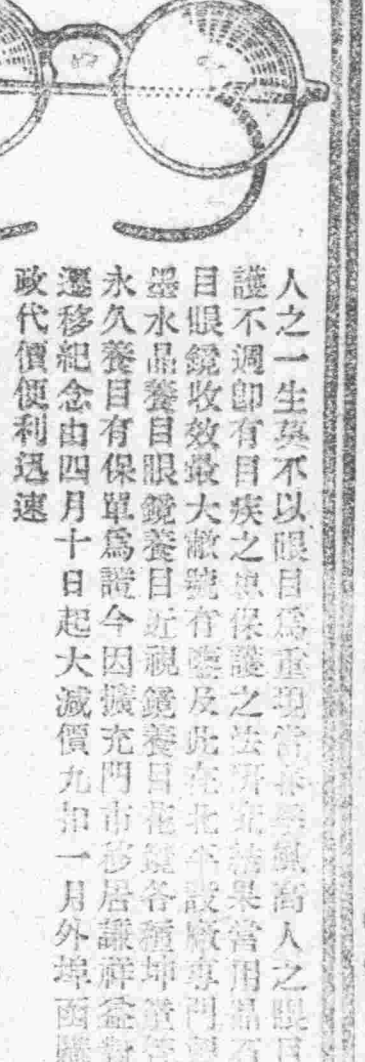 人之一生莫不以眼目為重現當春風高人之眼目
護不週即有目疾之患保護之法研究結果當用晶石
目眼鏡收效最大敝號有鑒及此在北平設廠專門
墨水晶養目眼鏡養目近視鏡養目花鏡各種
永久養目有保單為證今因擴充門市移居謙祥益
遷移紀念由四月十日起大減價九扣一月外埠函購
政代價便利迅速